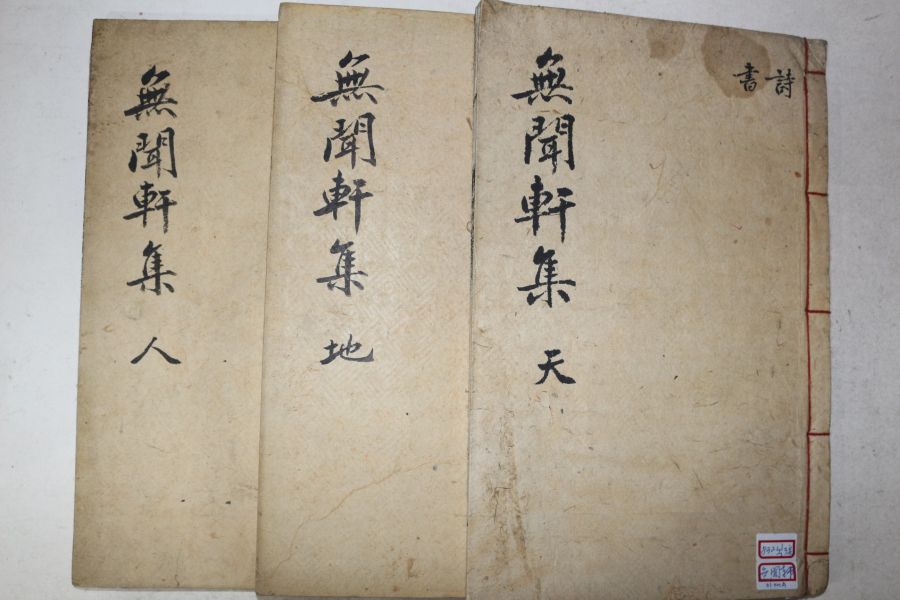 詩
書
無聞軒集 天
無聞軒集 地
無聞軒集 人